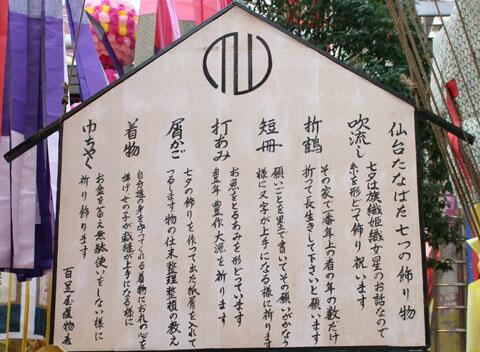 仙台たなばた 七つの飾り物
吹流し
七夕は旗織姫織女星のお話なので
糸を形どって飾り祝います
折鶴
その家で一番年上の者の年の数だけ
折って長生きして下さいと願います
短冊
願いごとを墨で書いてその願いがかなう
様に又字が上手になる様に祈ります
打あみ
お魚をとるあみを形どっています
豊年 豊作 大漁を祈ります
屑かご
七夕の飾りを作って出た紙屑を入れて
つるします 物の仕末 整理整頓の教え
着物
自分達の身を守ってくれる着物にお礼の心を
捧げ女の子が裁縫が上手になる様に
巾ちゃく
お金を貯え無駄使いをしない様に
祈り飾ります
百足屋履物店